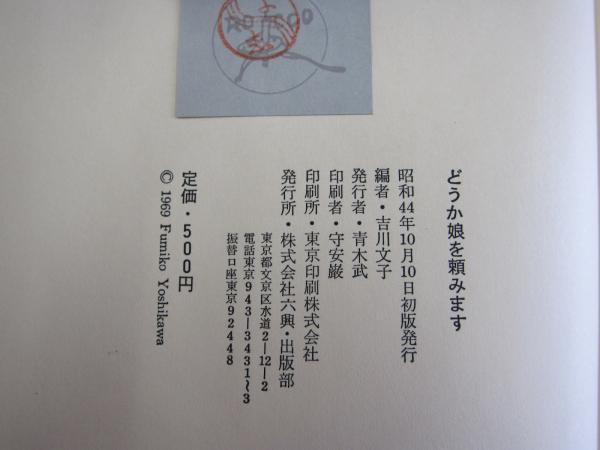 どうか娘を頼みます
昭和44年10月10日初版発行
編者・吉川文子
発行者・青木武
印刷者・守安巌
印刷所・東京印刷株式会社
発行所・株式会社六興・出版部
東京都文京区水道2−12−2
電話東京943−3431〜3
振替口座東京92448
定価・500円
© 1969 Fumiko Yoshikawa